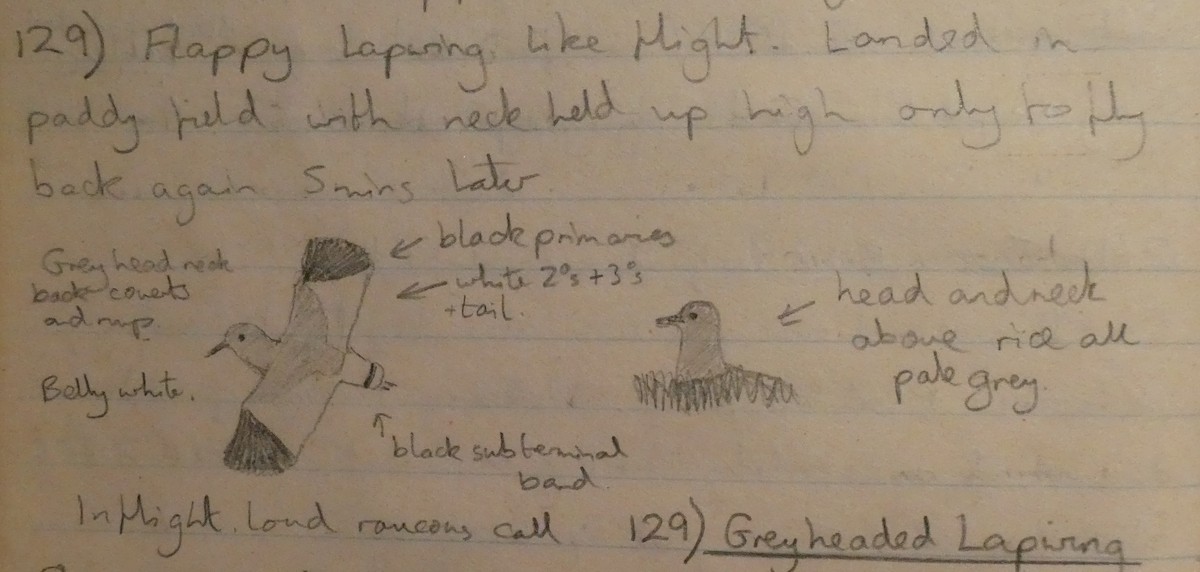 129) Flappy Lapwing like flight. Landed in
paddy field with neck held up high only to fly
back again 5mins later.
Grey head neck
back coverts
and rump.
Belly white.
← black primaries
← white 2°s + 3°s
+ tail.
↑ black subterminal
band.
← head and neck
above rice all
pale grey.
In flight. Loud raucous call
129) Greyheaded Lapwing